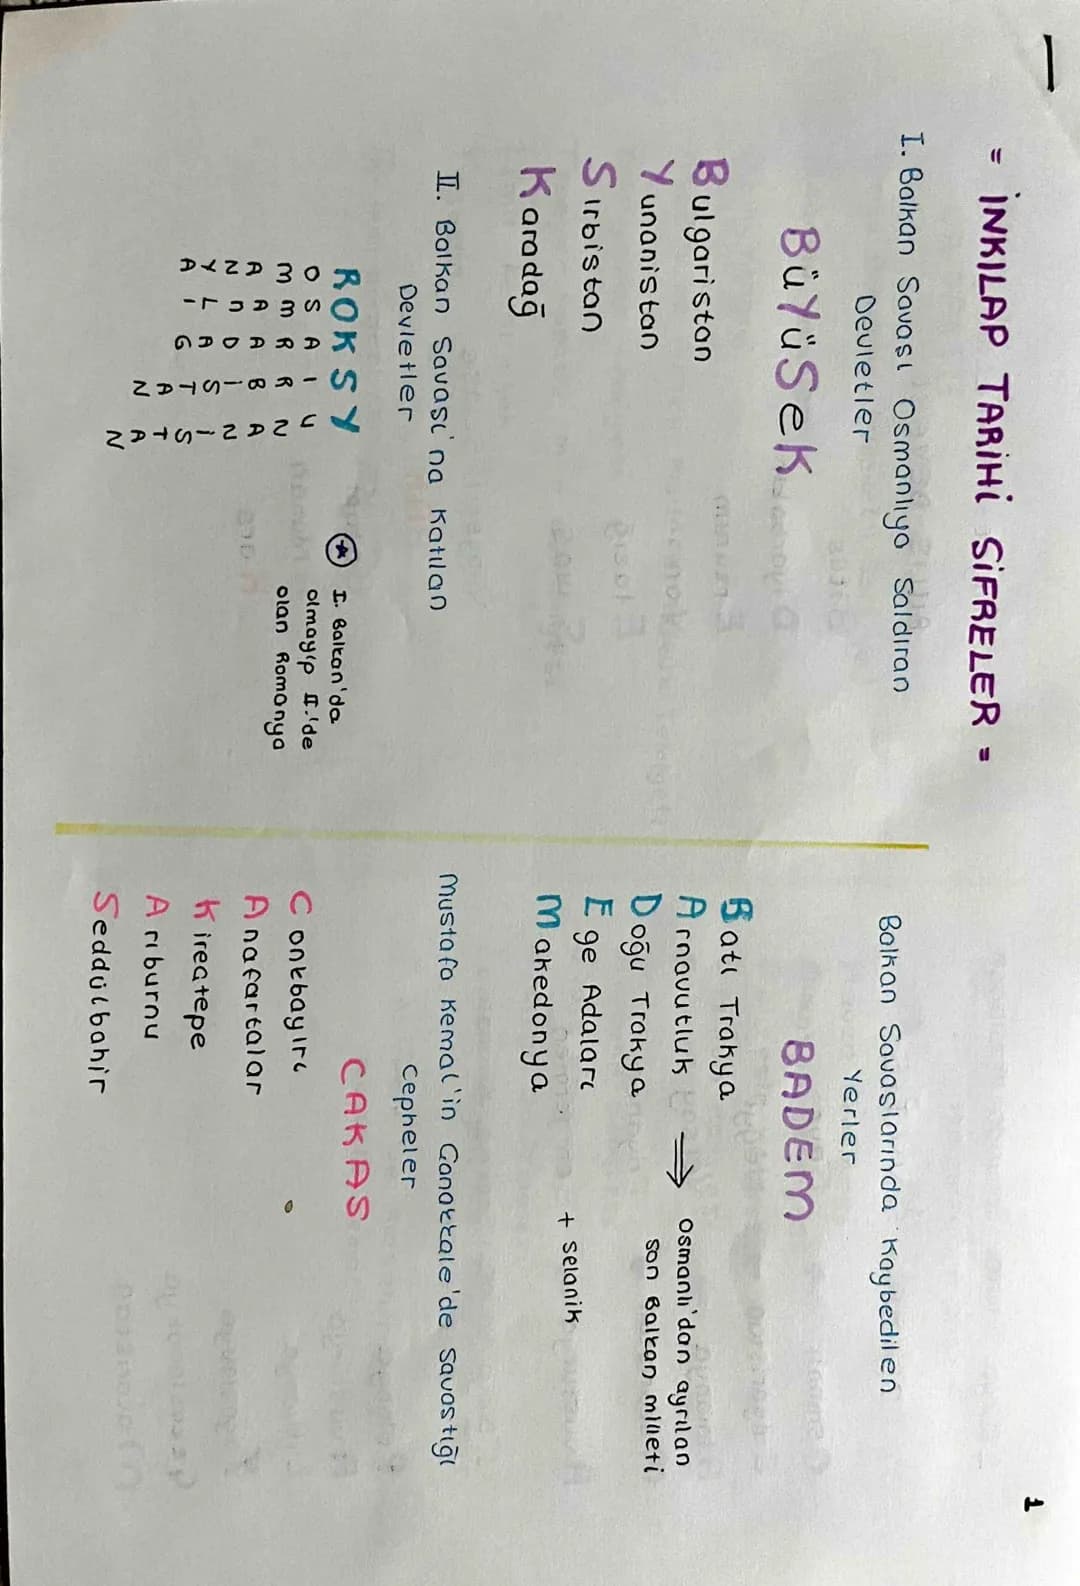 1
= İNKILAP TARİHİ ŞİFRELER =
I. Balkan Savası Osmanlıya Saldıran
Devletler
BüYüSeK
Bulgaristan
Yunanistan
Sırbistan
Karadağ
II. Balkan Savası'na Katılan
Devletler
ROKSY
O S A I U
M M R R N
A A A B A
N N D İ N
Y L A S İ
A I G T S
A T
N A
N
I. Balkan'da
olmayıp II.'de
olan Romanya
Balkan Savaslarında Kaybedilen
Yerler
BADEM
Batı Trakya
Arnavutluk ⇒ Osmanlı'dan ayrılan
son Balkan milleti
Doğu Trakya
Ege Adaları
Makedonya + Selanik
Mustafa Kemal'in Canakkale'de Savastığı
Cepheler
CAKAS
Conkbayırı
Anafartalar
Kirectepe
Arıburnu
Seddülbahir